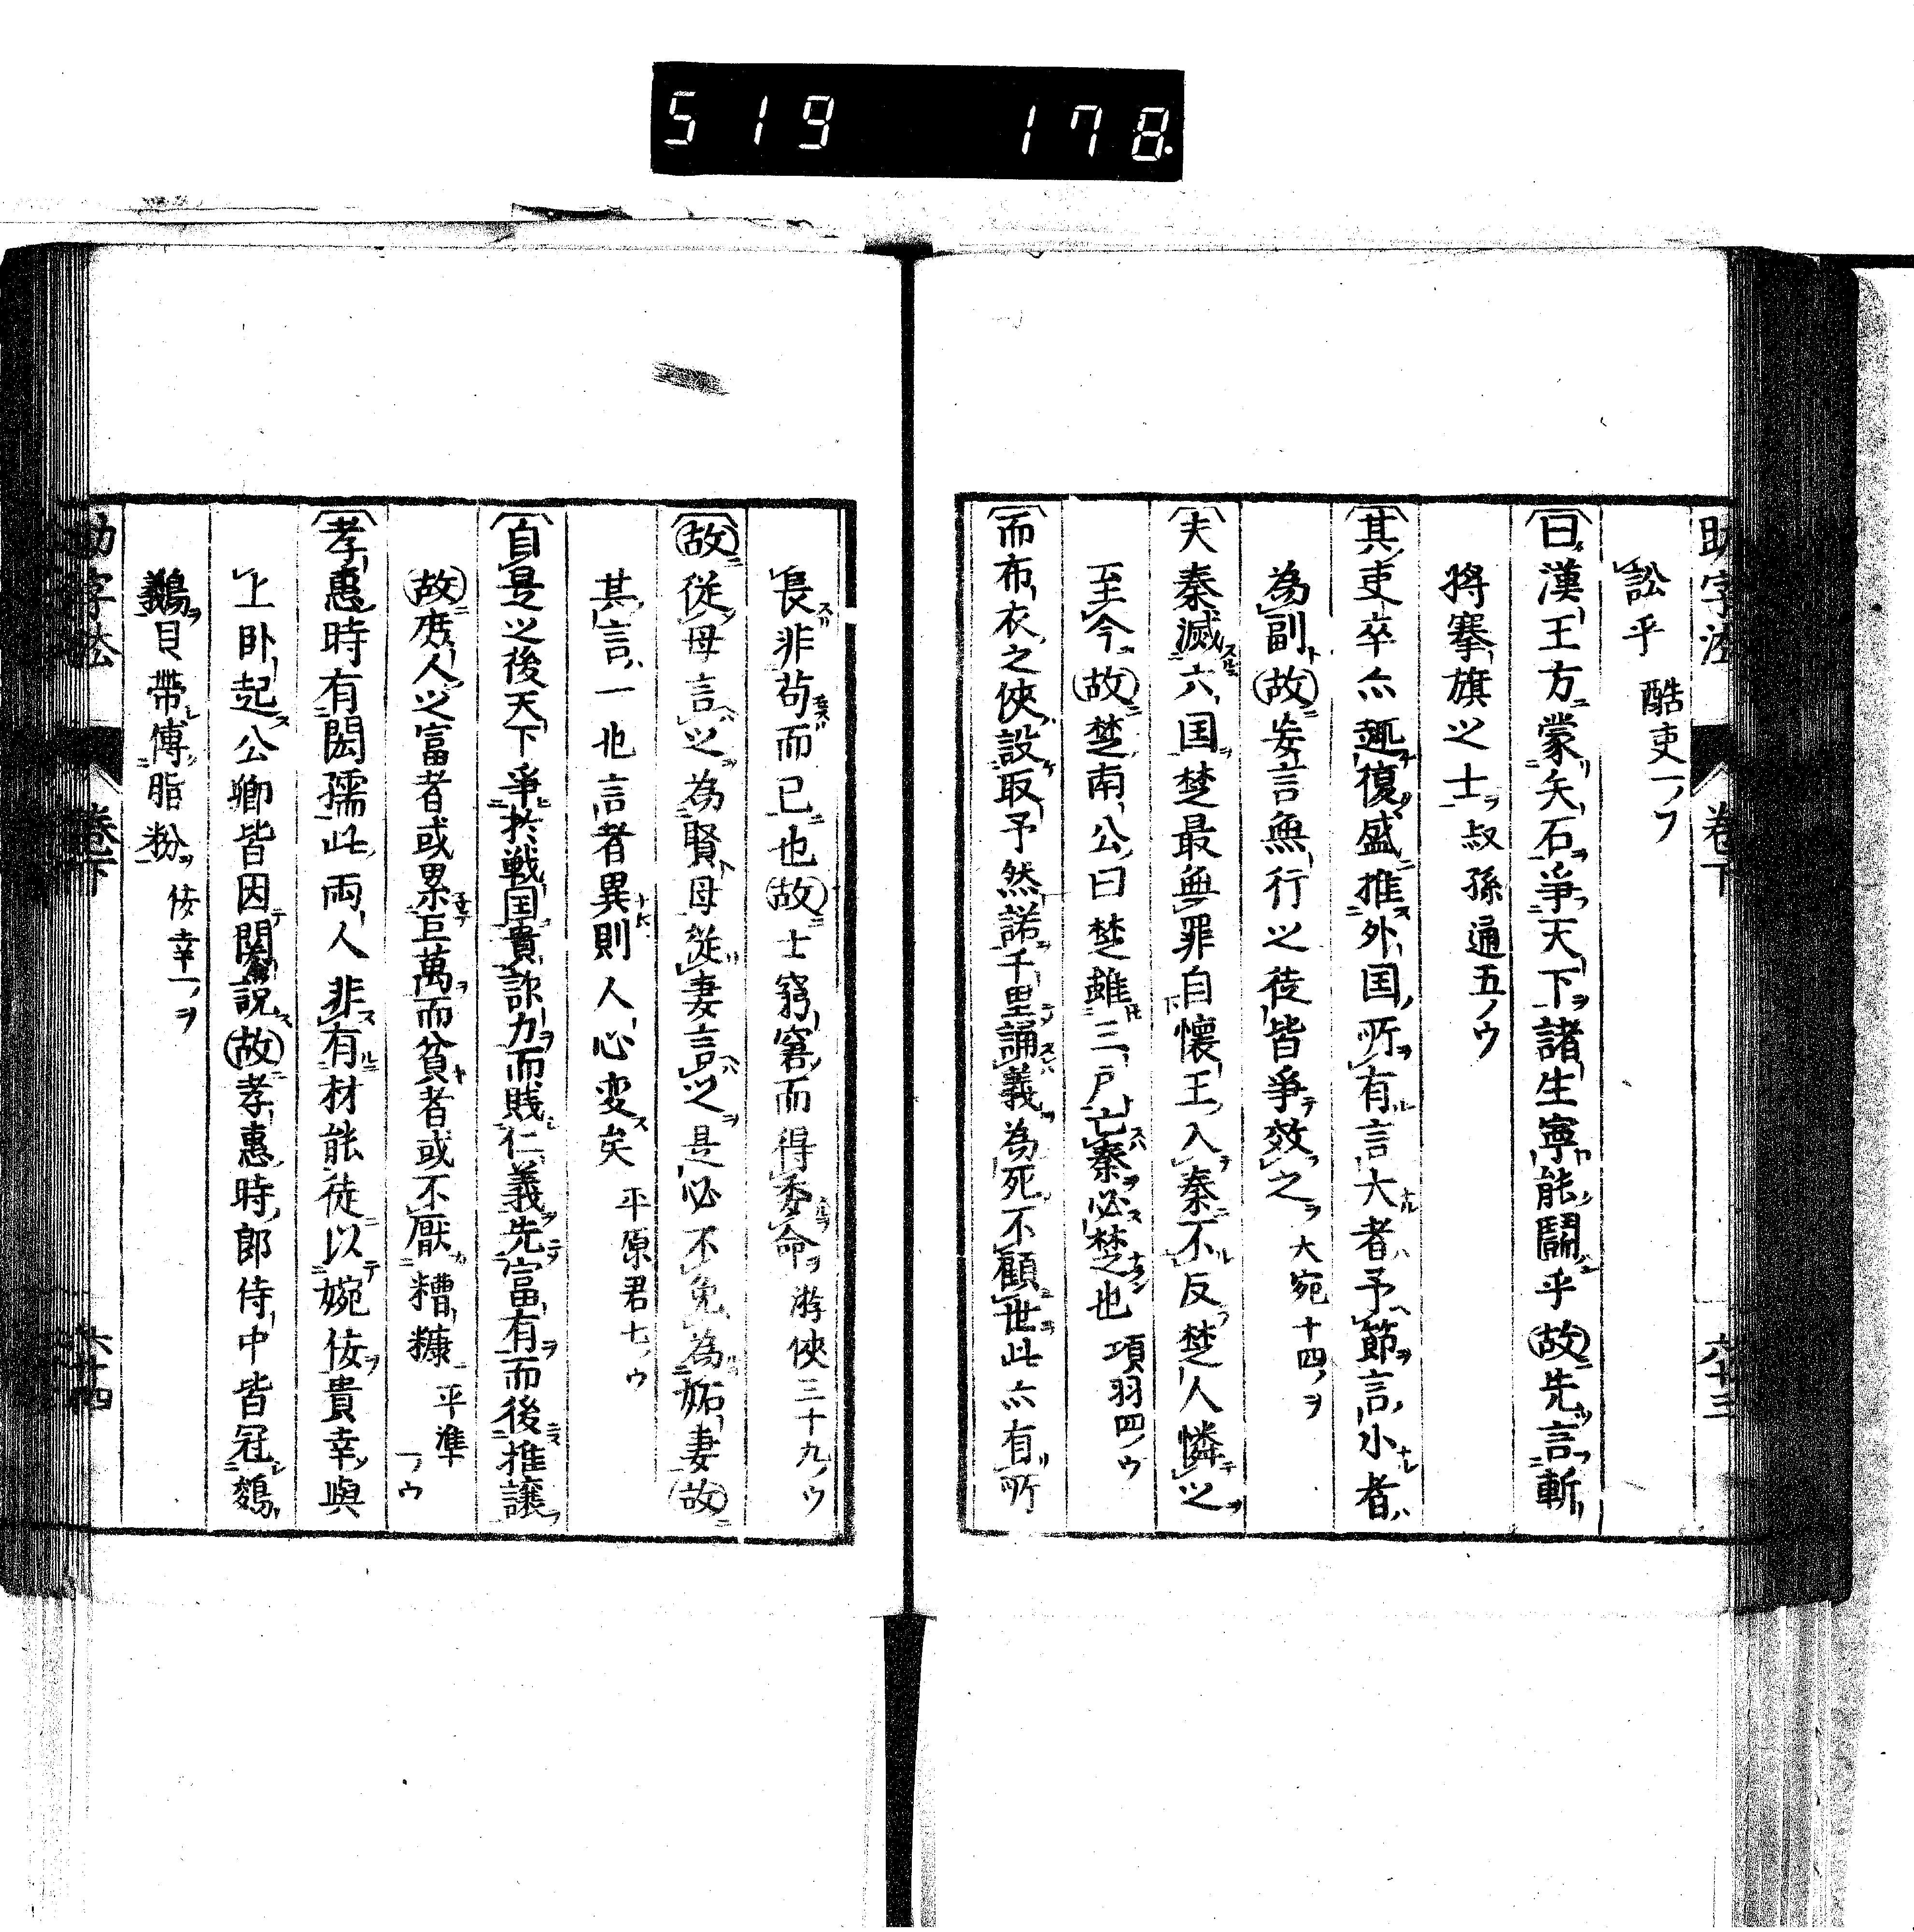 519 178.
助字法 卷下 六十三
訟乎 酷吏一ノフ
曰漢王方蒙矢石爭天下諸生寧能鬪乎故先言斬
將搴旗之士 叔孫通五ノウ
其吏卒亦輒復盛推外国所有言大者予節言小者
為副故妄言無行之徒皆爭效之 大宛十四ノヲ
夫秦滅六国楚最無罪自懷王入秦不反楚人憐之
至今故楚南公曰楚雖三戸亡秦必楚也 項羽四ノウ
而布衣之俠設取予然諾千里誦義為死不顧世此亦有所
長非苟而已也故士窮窘而得委命 游俠三十九ノウ
故從母言之為賢母從妻言之是必不免為妬妻故
其言一也言者異則人心変矣 平原君七ノウ
自是之後天下爭於戦国貴詐力而賤仁義先富有而後推讓
故庶人之富者或累巨萬而貧者或不厭糟糠 平準一ノウ
孝惠時有閎孺此両人非有材能徒以婉佞貴幸與
上卧起公卿皆因関説故孝惠時郎侍中皆冠鵕
鸃貝帶傅脂粉 佞幸一ノヲ
卷下 六十四